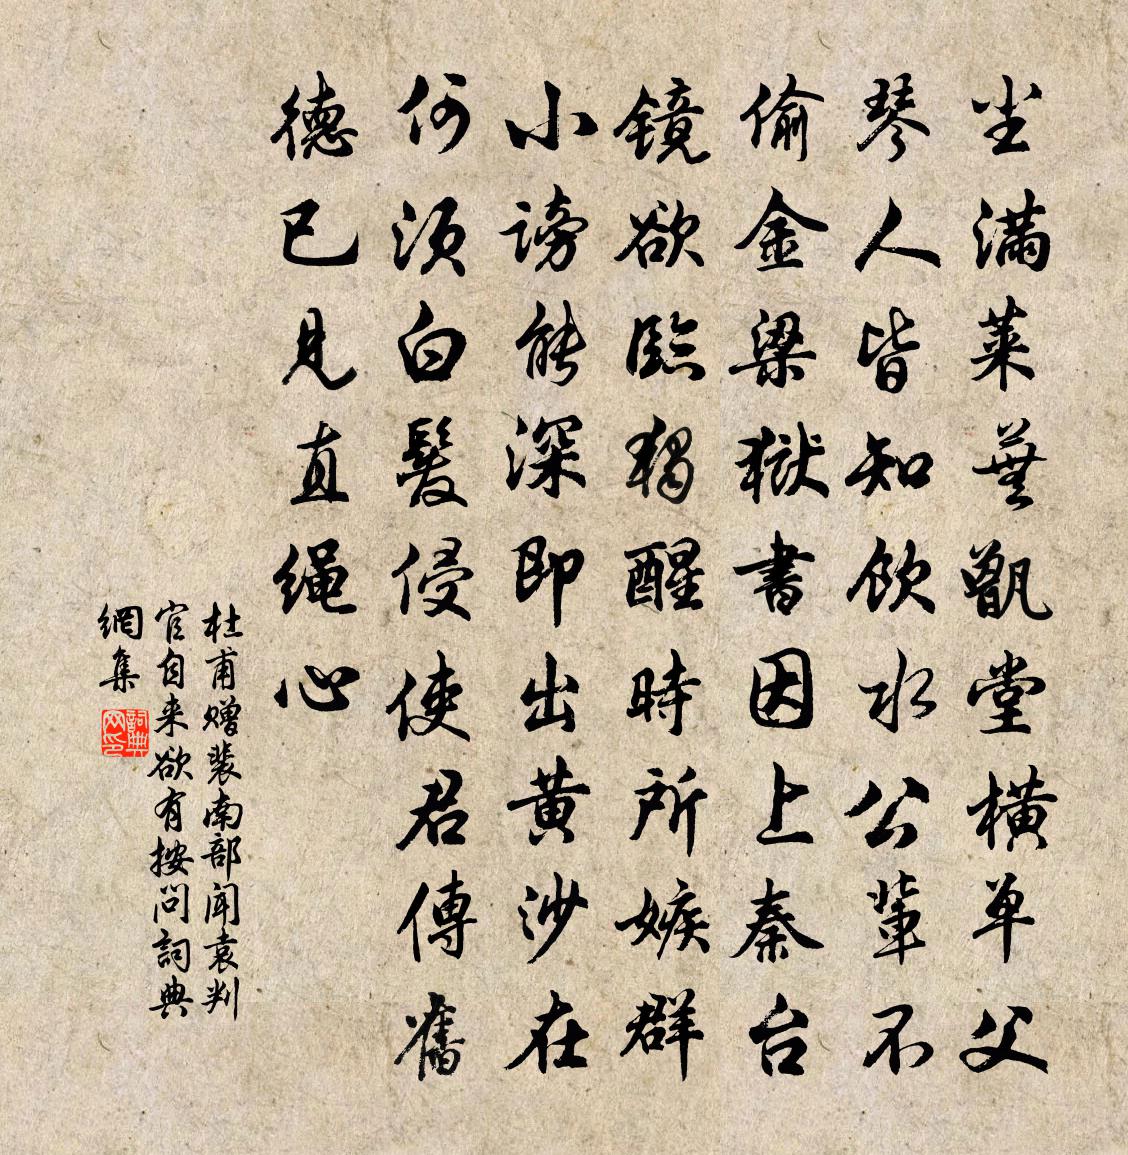 尘满莱芜甑堂横单父
琴人皆知饮水公辈不
偷金梁獄書因上秦台
镜欲臨獨醒時所嫉群
小謗能深即出黄沙在
何须白髮侵使君傳舊
德已見直绳心
杜甫赠裴南部聞袁判
官自来欲有按問詞典
網集
詞典网印